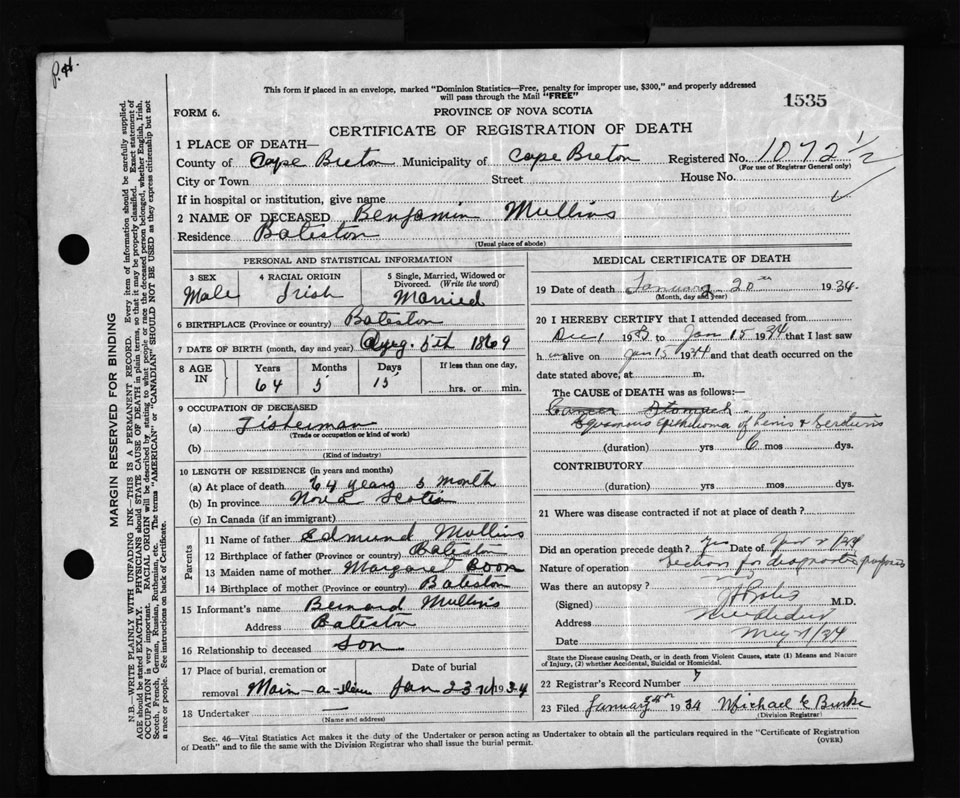 P.H.
This form if placed in an envelope, marked "Dominion Statistics—Free, penalty for improper use, $300," and properly addressed
will pass through the Mail "FREE"
1535
FORM 6.
PROVINCE OF NOVA SCOTIA
CERTIFICATE OF REGISTRATION OF DEATH
1 PLACE OF DEATH—
County of Cape Breton Municipality of Cape Breton Registered No. 1072 1/2
(For use of Registrar General only)
City or Town Street House No.
If in hospital or institution, give name
2 NAME OF DECEASED Benjamin Mullins
Residence Bateston
(Usual place of abode)
PERSONAL AND STATISTICAL INFORMATION
3 SEX 4 RACIAL ORIGIN 5 Single, Married, Widowed or
Divorced. (Write the word)
Male Irish Married
6 BIRTHPLACE (Province or country) Bateston
7 DATE OF BIRTH (month, day and year) Aug. 5th 1869
8 AGE IN Years Months Days If less than one day,
64 5 15 hrs. or min.
9 OCCUPATION OF DECEASED
(a) Fisherman
(Trade or occupation or kind of work)
(b)
(Kind of industry)
10 LENGTH OF RESIDENCE (in years and months)
(a) At place of death 64 years 5 month
(b) In province Nova Scotia
(c) In Canada (if an immigrant)
Parents
11 Name of father Edmund Mullins
12 Birthplace of father (Province or country) Bateston
13 Maiden name of mother Margaret Boon
14 Birthplace of mother (Province or country) Bateston
15 Informant's name Bernard Mullins
Address Bateston
16 Relationship to deceased Son
17 Place of burial, cremation or Date of burial
removal Main-a-dieu Jan 23rd 1934
18 Undertaker —
(Name and address)
MEDICAL CERTIFICATE OF DEATH
19 Date of death January 20th 1934
(Month, day and year)
20 I HEREBY CERTIFY that I attended deceased from
Dec 1 1933 to Jan 15 1934 that I last saw
h im alive on Jan 15 1934 and that death occurred on the
date stated above, at m.
The CAUSE OF DEATH was as follows:
Cancer Stomach
Squamous Epithelioma of Penis &
(duration) yrs 6 mos dys.
CONTRIBUTORY
(duration) yrs. mos dys.
21 Where was disease contracted if not at place of death?
Did an operation precede death? Yes Date of
Nature of operation Section for diagnostic purposes
Was there an autopsy? no
(Signed) M.D.
Address
Date May 21/34
State the Disease causing Death, or in death from Violent Causes, state (1) Means and Nature
of Injury, (2) whether Accidental, Suicidal or Homicidal.
22 Registrar's Record Number 7
23 Filed January 1934 Michael E Burke
(Division Registrar)
Sec. 46—Vital Statistics Act makes it the duty of the Undertaker or person acting as Undertaker to obtain all the particulars required in the "Certificate of Registration
of Death" and to file the same with the Division Registrar who shall issue the burial permit.
(OVER)
MARGIN RESERVED FOR BINDING
N.B.—WRITE PLAINLY WITH UNFADING INK—THIS IS A PERMANENT RECORD. Every item of information should be carefully supplied.
AGE should be stated EXACTLY. PHYSICIANS should STATE CAUSE OF DEATH in plain terms, so that it may be properly classified. Exact statement of
OCCUPATION is very important. RACIAL ORIGIN will be described by stating to what people or race the deceased person belonged, whether English, Irish,
Scotch, French, German, Russian, Ruthenian, etc. The terms "AMERICAN" or "CANADIAN" SHOULD NOT BE USED as they express citizenship but not
a race or people. See instructions on back of Certificate.